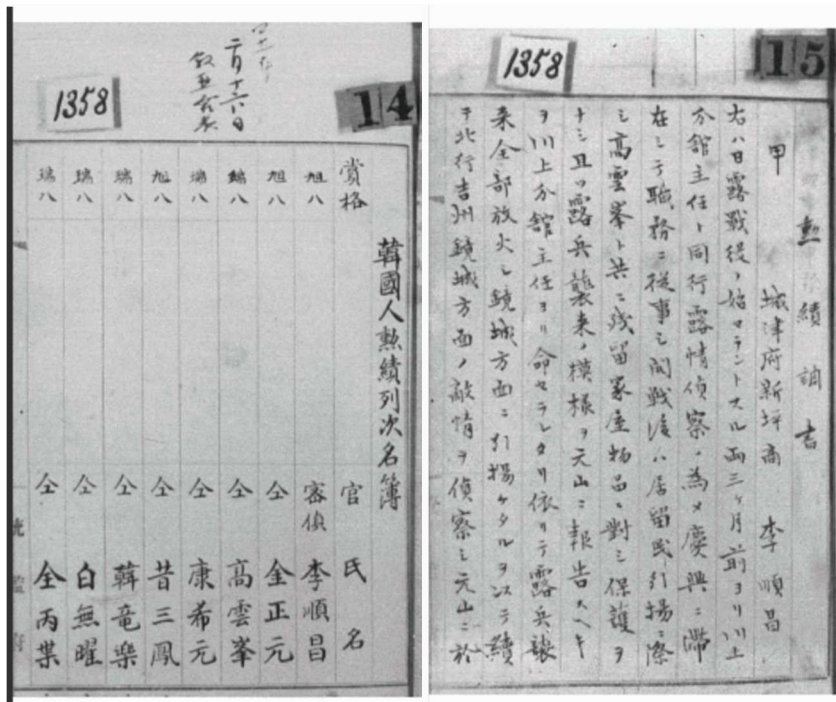 1358
14
二月十六日
韓國人勲績列次名簿
賞格 官 氏 名
旭八 審偵 李順昌
旭八 仝 金正元
瑞八 仝 高雲峯
瑞八 仝 康希元
旭八 仝 昔三鳳
瑞八 仝 韓竜樂
瑞八 仝 白無曜
瑞八 仝 全丙業
統監府
1358
15
勲績調書
甲 城津府新坪商 李順昌
右ハ日露戦役ノ始マラントスル両三ヶ月前ヨリ川上
分館主任ト同行露情偵察ノ為メ慶興ニ滞
在シテ職務ニ従事シ開戦後ハ居留民引揚ニ際
シ高雲峯ト共ニ残留家屋物品ニ對シ保護ヲ
ナシ且ツ露兵襲来ノ模様ヲ元山ニ報告スヘキ
ヲ川上分館主任ヨリ命セラレタリ依リテ露兵襲
来全部放火シ鏡城方面ニ引揚ケタルヲ以テ續
テ北行吉州鏡城方面ノ敵情ヲ偵察シ元山ニ於